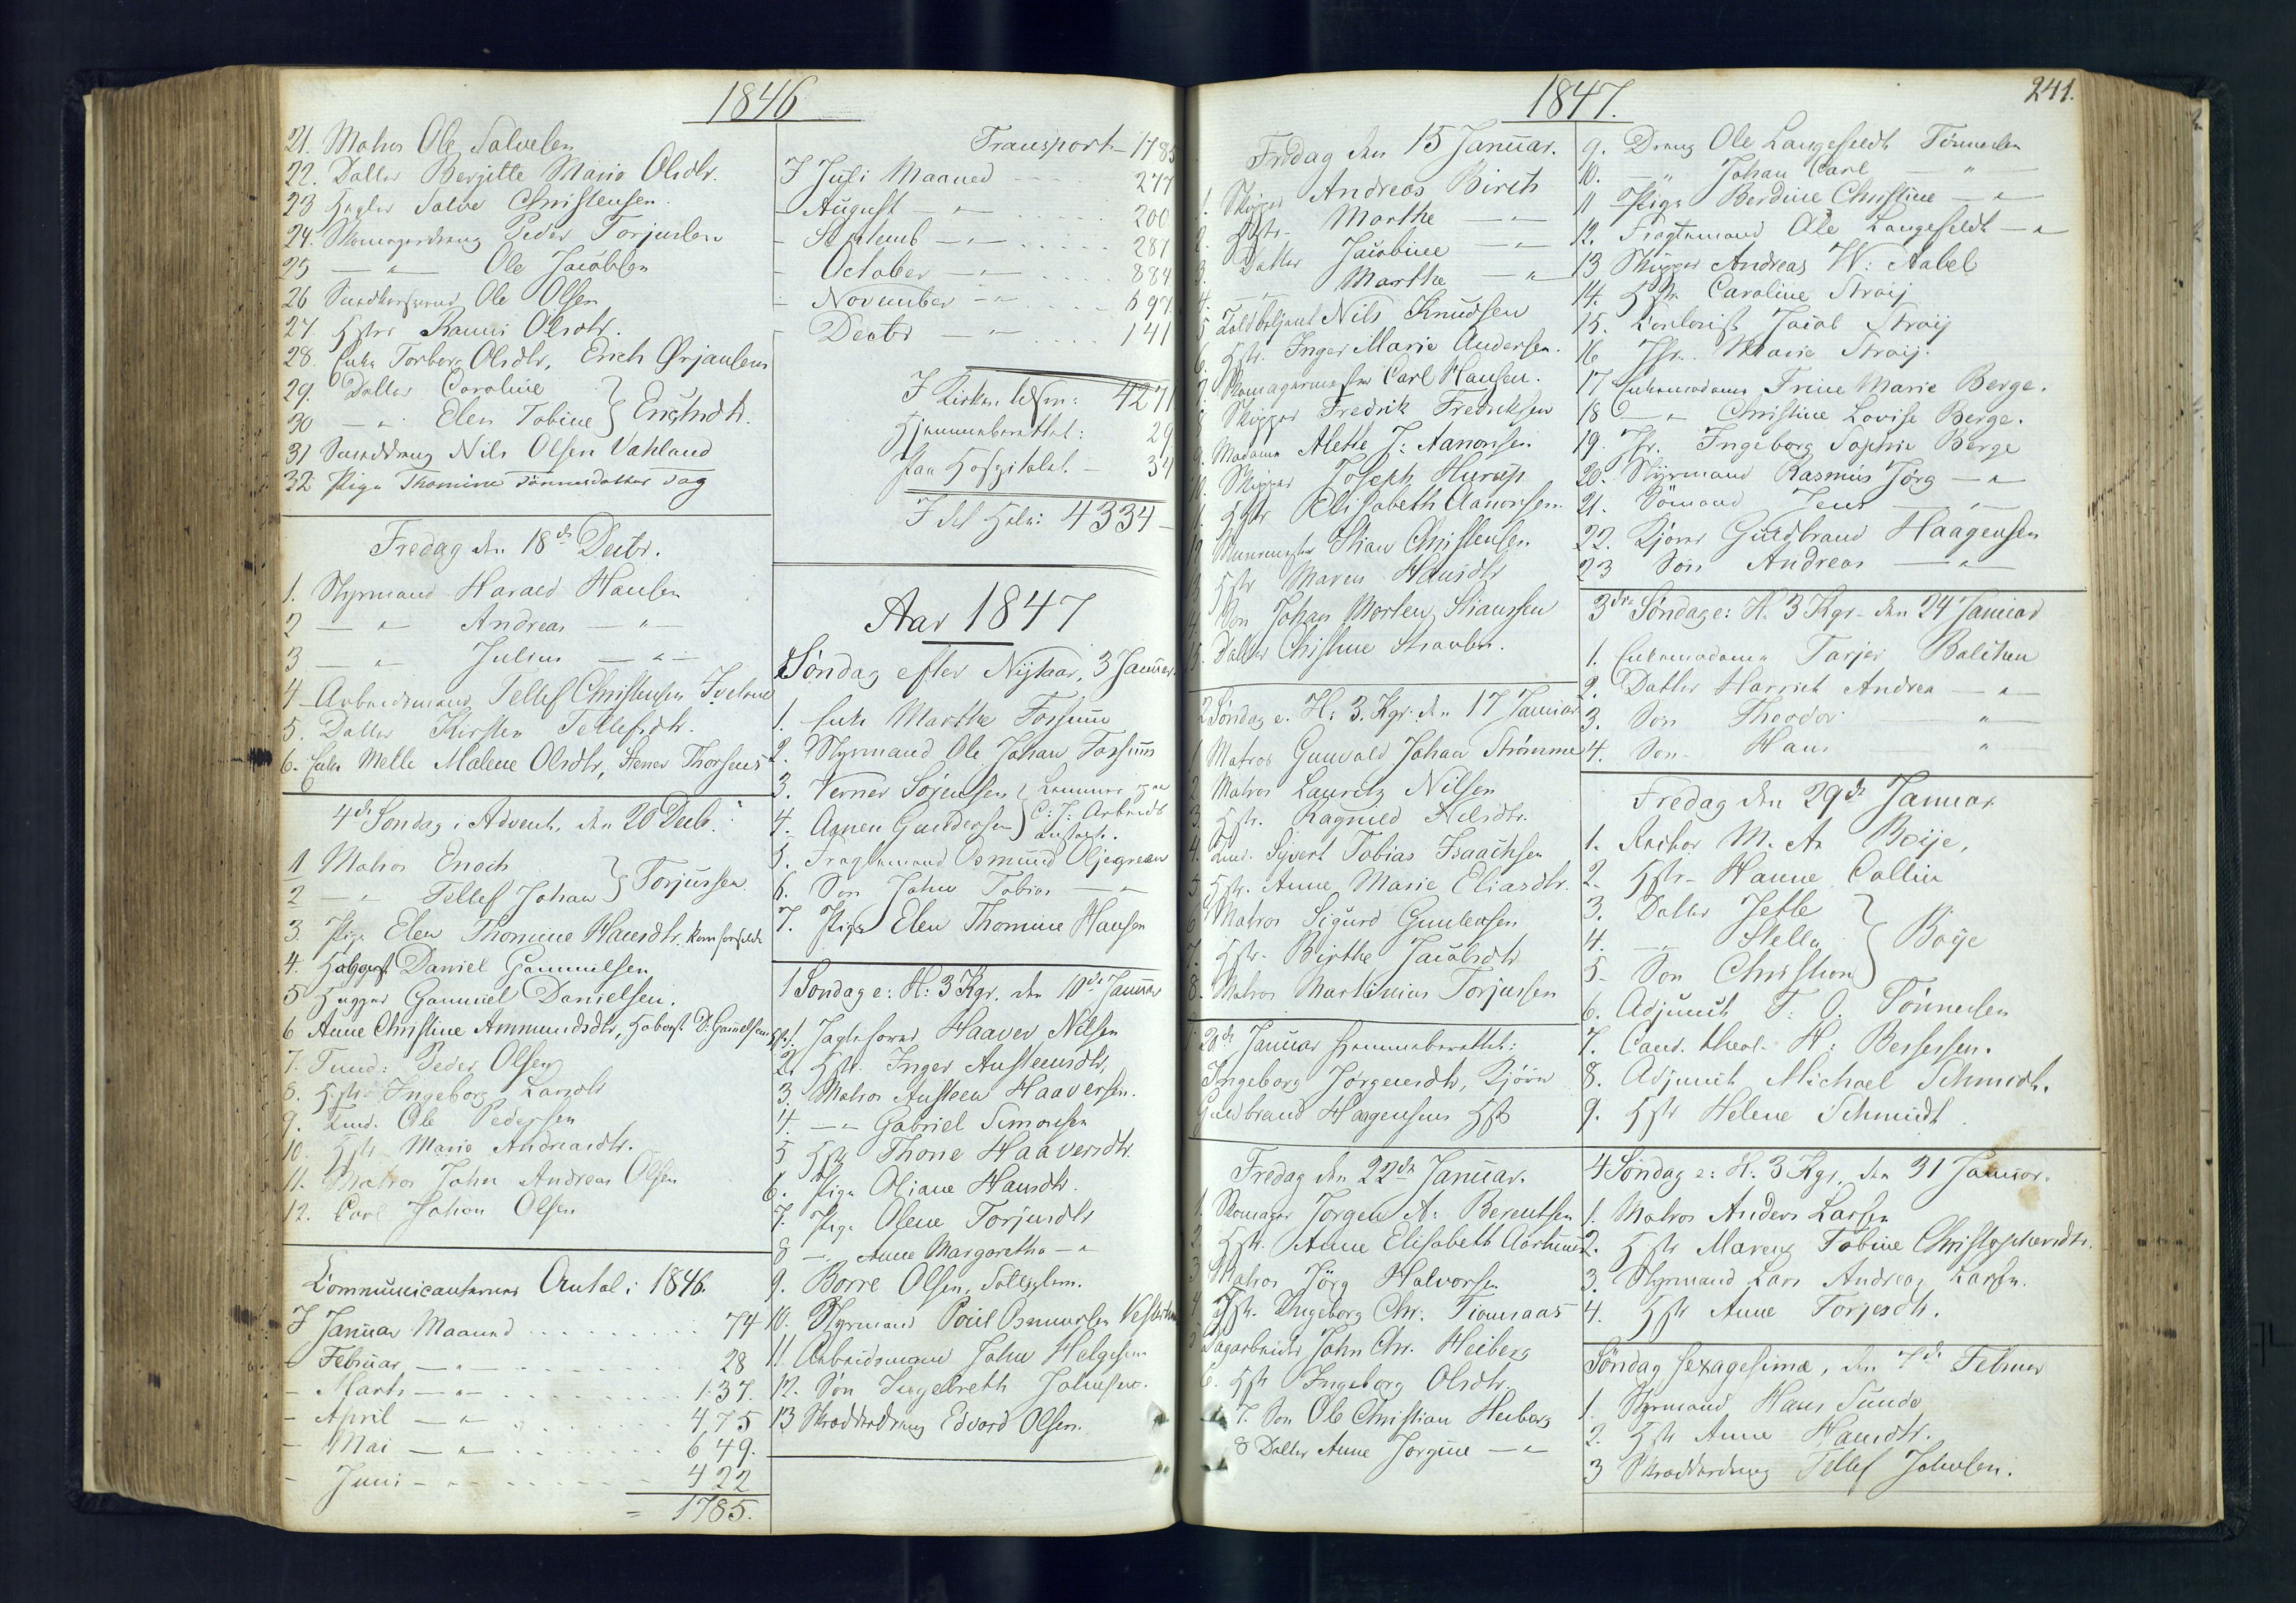 1846
21. Matros Ole Salvesen
22. Datter Bergitte Maria Olsdtr.
23 Salve Christensen.
24. Skomagerdreng Peder Torjusen
25 — " — Ole Jacobsen
26 Ole Olsen
27. Hstr Ranni Olsdtr.
28. Enke Torborg Olsdtr, Erich Ørjansens
29. Datter Caroline } Erichsdtr.
30 — " Elen Tobine
31 Smeddreng Nils Olsen Vahland
32 Pige Thomine Tønnesdatter Dag
Fredag den 18de Decbr.
1. Styrmand Harald Hansen
2 — " — Andreas — " —
3 — " — Julius — " —
4 Arbeidsmand Tellef Christensen
5. Datter Kirsten Tellefsdtr.
6. Enke Melle Malene Olsdtr, Stener Thorsens
4de Søndag i Advent, den 20 Decb.
1 Matros Enoch } Torjussen
2 — " Tellef Johan
3. Pige Elen Thomine Hansdtr.
4. Daniel Gammelsen
5 Gammel Danielsen.
6 Anne Christine Ammundsdtr, D. Gamelsens Hstr.
7. Peder Olsen
8. Hstr Ingeborg Larsdtr
9. Ole Pedersen
10. Hstr Marie Andreasdtr.
11. Matros John Andreas Olsen
12. Carl Johan Olsen
Communicanternes Antal i 1846.
I Januar Maaned . . . . . 74
- Februar — " — . . . . . 28
- Marts — " — . . . . . 137.
- April — " — . . . . . 475
- Mai — " — . . . . . 649.
- Juni — " — . . . . . 422
= 1785.
Transport — 1785
I Juli Maaned — 247
- August — " — . . . . 200
- Septemb — " — . . . . 287
- October — " — . . . . 884
- November — " — . . 697
- Decbr — " — . . . . 141
I Kirken 4271
Hjemmeberettet: 29
Paa Hospitalet — 34
I det Hele: 4334 —
Aar 1847
Søndag efter Nytaar, 3 Januar.
1. Enke Marthe Fossum
2. Styrmand Ole Johan Fossum
3. Verner Sørensen } Lemmer paa
4. Agnen Gundersen C. J. Arbeids
anstalt.
5. Fragtemand Osmund Oljegreen
6. Søn John Tobias — " —
7. Pige Elen Thomine Hansen
1 Søndag e: H: 3 Kgr. den 10de Januar
1. Haaver Nilsen
2. Hstr. Inger Austensdtr.
3. Matros Austeen Haaversen.
4. — " — Gabriel Simonsen
5 Hstr Thone Haaversdtr.
6. Pige Oliane Hansdtr.
7. Pige Olene Torjusdtr
8 — " Anne Margaretha — "
9. Borre Olsen,
10. Styrmand Poul Osmundsen
11. Arbeidsmand John Helgesen
12. Søn Ingebreth Johnsen.
13 Skrædderdreng Edvard Olsen.
1847.
241.
Fredag den 15 Januar.
1. Skipper Andreas Birch
2. Hstr. Marthe — " —
3. Datter Jacobine — " —
4. — " Marthe — " —
5 Toldbetjent Nils Knudsen
6. Hstr. Inger Marie Andersen.
7. Skomagermester Carl Hansen.
8 Skipper Fredrik Fredriksen
9. Madame Alette J: Aanonsen
10. Skipper Joseph
11. Hstr Elisabeth Aanonsen
12 Muurmester Stian Christensen
13 Hstr Maren Hansdtr
14. Søn Johan Morten Stianssen
15. Datter Christine
2 Søndag e. H: 3. Kgr. den 17 Januar
1 Matros Gunvald Johan Strømme
2 Matros Lauritz Nilsen
3. Hstr. Ragnild Nilsdtr.
4. Sivert Tobias Isaachsen
5 Hstr. Anne Marie Eliasdtr.
6 Matros Sigurd Gunlevsen
7. Hstr. Birthe Jacobsdtr
8. Matros Martinius Torjussen
20de Januar Hjemmeberettet:
Ingeborg Jørgensdtr, Kjører
Guldbrand Haagensens Hst
Fredag den 22de Januar.
1. Skomager Jørgen A: Berentsen
2 Hstr. Anne Elisabeth
3 Matros Jørg Halvorsen
4 Hstr. Ingeborg Chr: Tiomsaas
5 Dagarbeider John Chr. Heiberg
6. Hstr Ingeborg Olsdtr.
7. Søn Ole Christian Heiberg
8 Datter Anne Jorgine — " —
9. Dreng Ole Langefeldt Tønnesen
10. — " Johan Carl — " —
11 Pige Berdine Christine — " —
12. Fragtemand Ole Langefeldt — " —
13 Skipper Andreas W: Aabel
14. Hstr. Caroline Straij
15. Contorist Jacob Straij
16 Jfr. Marie Straij.
17 Enkemadame Trine Marie Berge.
18 — " Christine Lovise Berge.
19. Jfr. Ingeborg Sophie Berge
20. Styrmand Rasmus Jørg — " —
21. Sømand Jens — " —
22. Kjører Guldbrand Haagensen
23 Søn Andreas — " —
3die Søndag e: H. 3 Kgr. den 24 Januar
1. Enkemadame Tarjer Balchen
2. Datter Harriet Andrea — " —
3. Søn Theodor — " —
4. Søn Hans — " —
Fredag den 29de Januar
1. Rector M. A. Boije,
2. Hstr. Hanne Collin
3. Datter Jette } Boije
4. — " Stella
5 Søn Christian
6. Adjunct T: O. Tønnesen
7. Cand. theol. H: Bessesen.
8. Adjunct Michael Schmidt.
9. Hstr Helene Schmidt
4 Søndag e: H. 3 Kgr. den 31 Januar.
1. Matros Anders Larsen
2. Hstr Maren Tobine Christophersdtr.
3. Styrmand Lars Andreas Larsen.
4. Hstr Anne Torjesdtr.
Søndag Sexagesima, den 7de Februar
1. Styrmand Hans Sunde
2. Hstr Anne Hansdtr.
3 Skrædderdreng Tellef Johnsen.